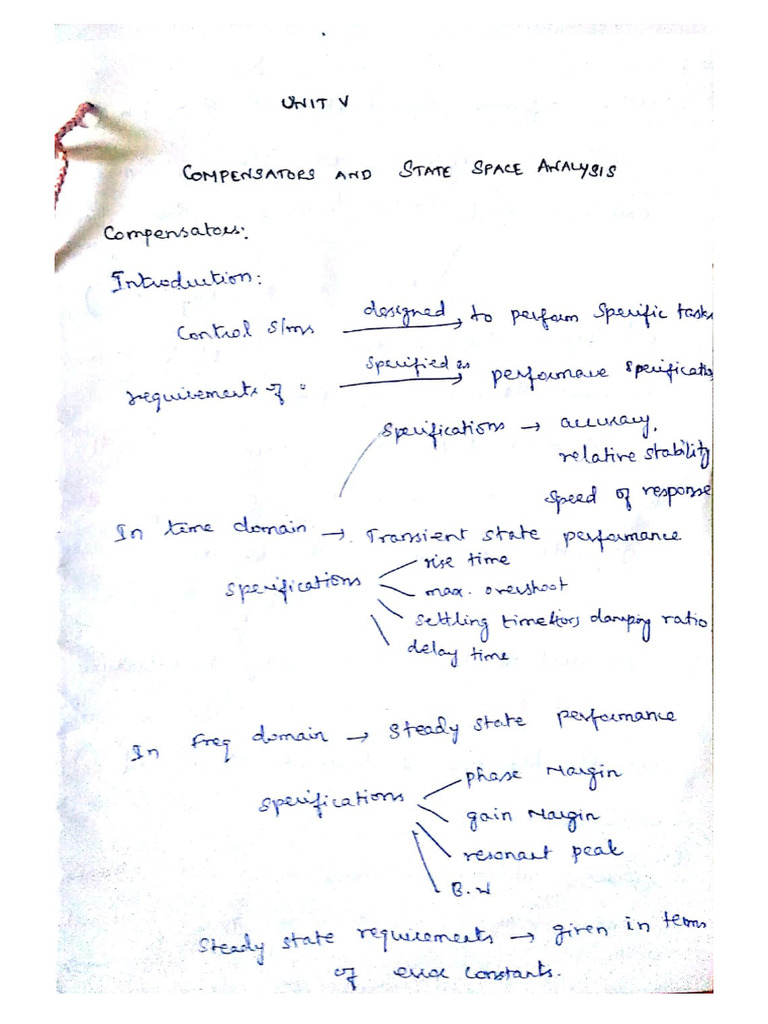 UNIT V
COMPENSATORS AND STATE SPACE ANALYSIS
Compensators:
Introduction:
Control S/ms designed → to perform specific tasks
requirements of specified as → performance specificatio
specifications → accuracy,
relative stability
speed of response
In time domain → Transient state performance
specifications
rise time
max. overshoot
settling time (or) damping ratio
delay time
In Freq domain → Steady state performance
specifications
phase Margin
gain Margin
resonant peak
B.W
Steady state requirements → given in terms
of error constants.